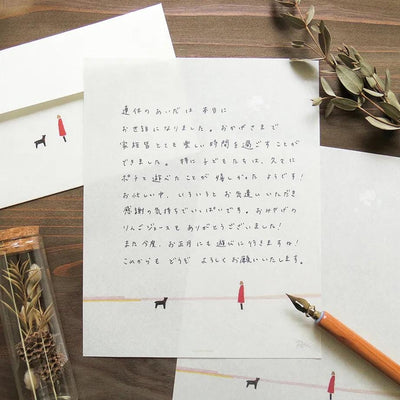 連休のあいだは 本当に
お世話になりました。おかげさまで
家族皆とても楽しい時間を過ごすことが
できました。特に子どもたちは、久々に
ポチと遊べたことが 嬉しかったようです!
お忙しい中、いろいろとお気遣いいただき
感謝の気持ちでいっぱいです。おみやげの
りんごジュースもありがとうございました!
また今度、お正月にも遊びに行きますね!
これからも どうぞ よろしくお願いいたします。